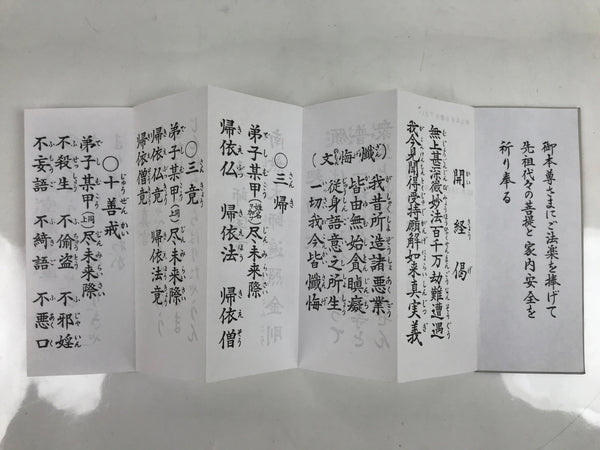 御本尊さまにご法楽を捧げて
先祖代々の菩提と家内安全を
祈り奉る
開経偈
無上甚深微妙法百千万劫難遭遇
我今見聞得受持願解如来真実義
(懺悔文)
我昔所造諸悪業
皆由無始貪瞋癡
従身語意之所生
一切我今皆懺悔
○三帰
弟子某甲 尽未来際
帰依仏 帰依法 帰依僧
○三竟
弟子某甲(上同)尽未来際
帰依仏竟 帰依法竟
帰依僧竟
○十善戒
弟子某甲(上同)尽未来際
不殺生 不偸盗 不邪婬
不妄語 不綺語 不悪口